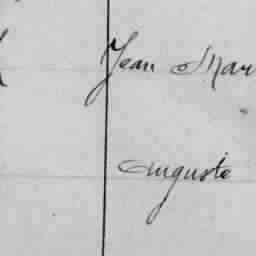 Jean Mar
Auguste